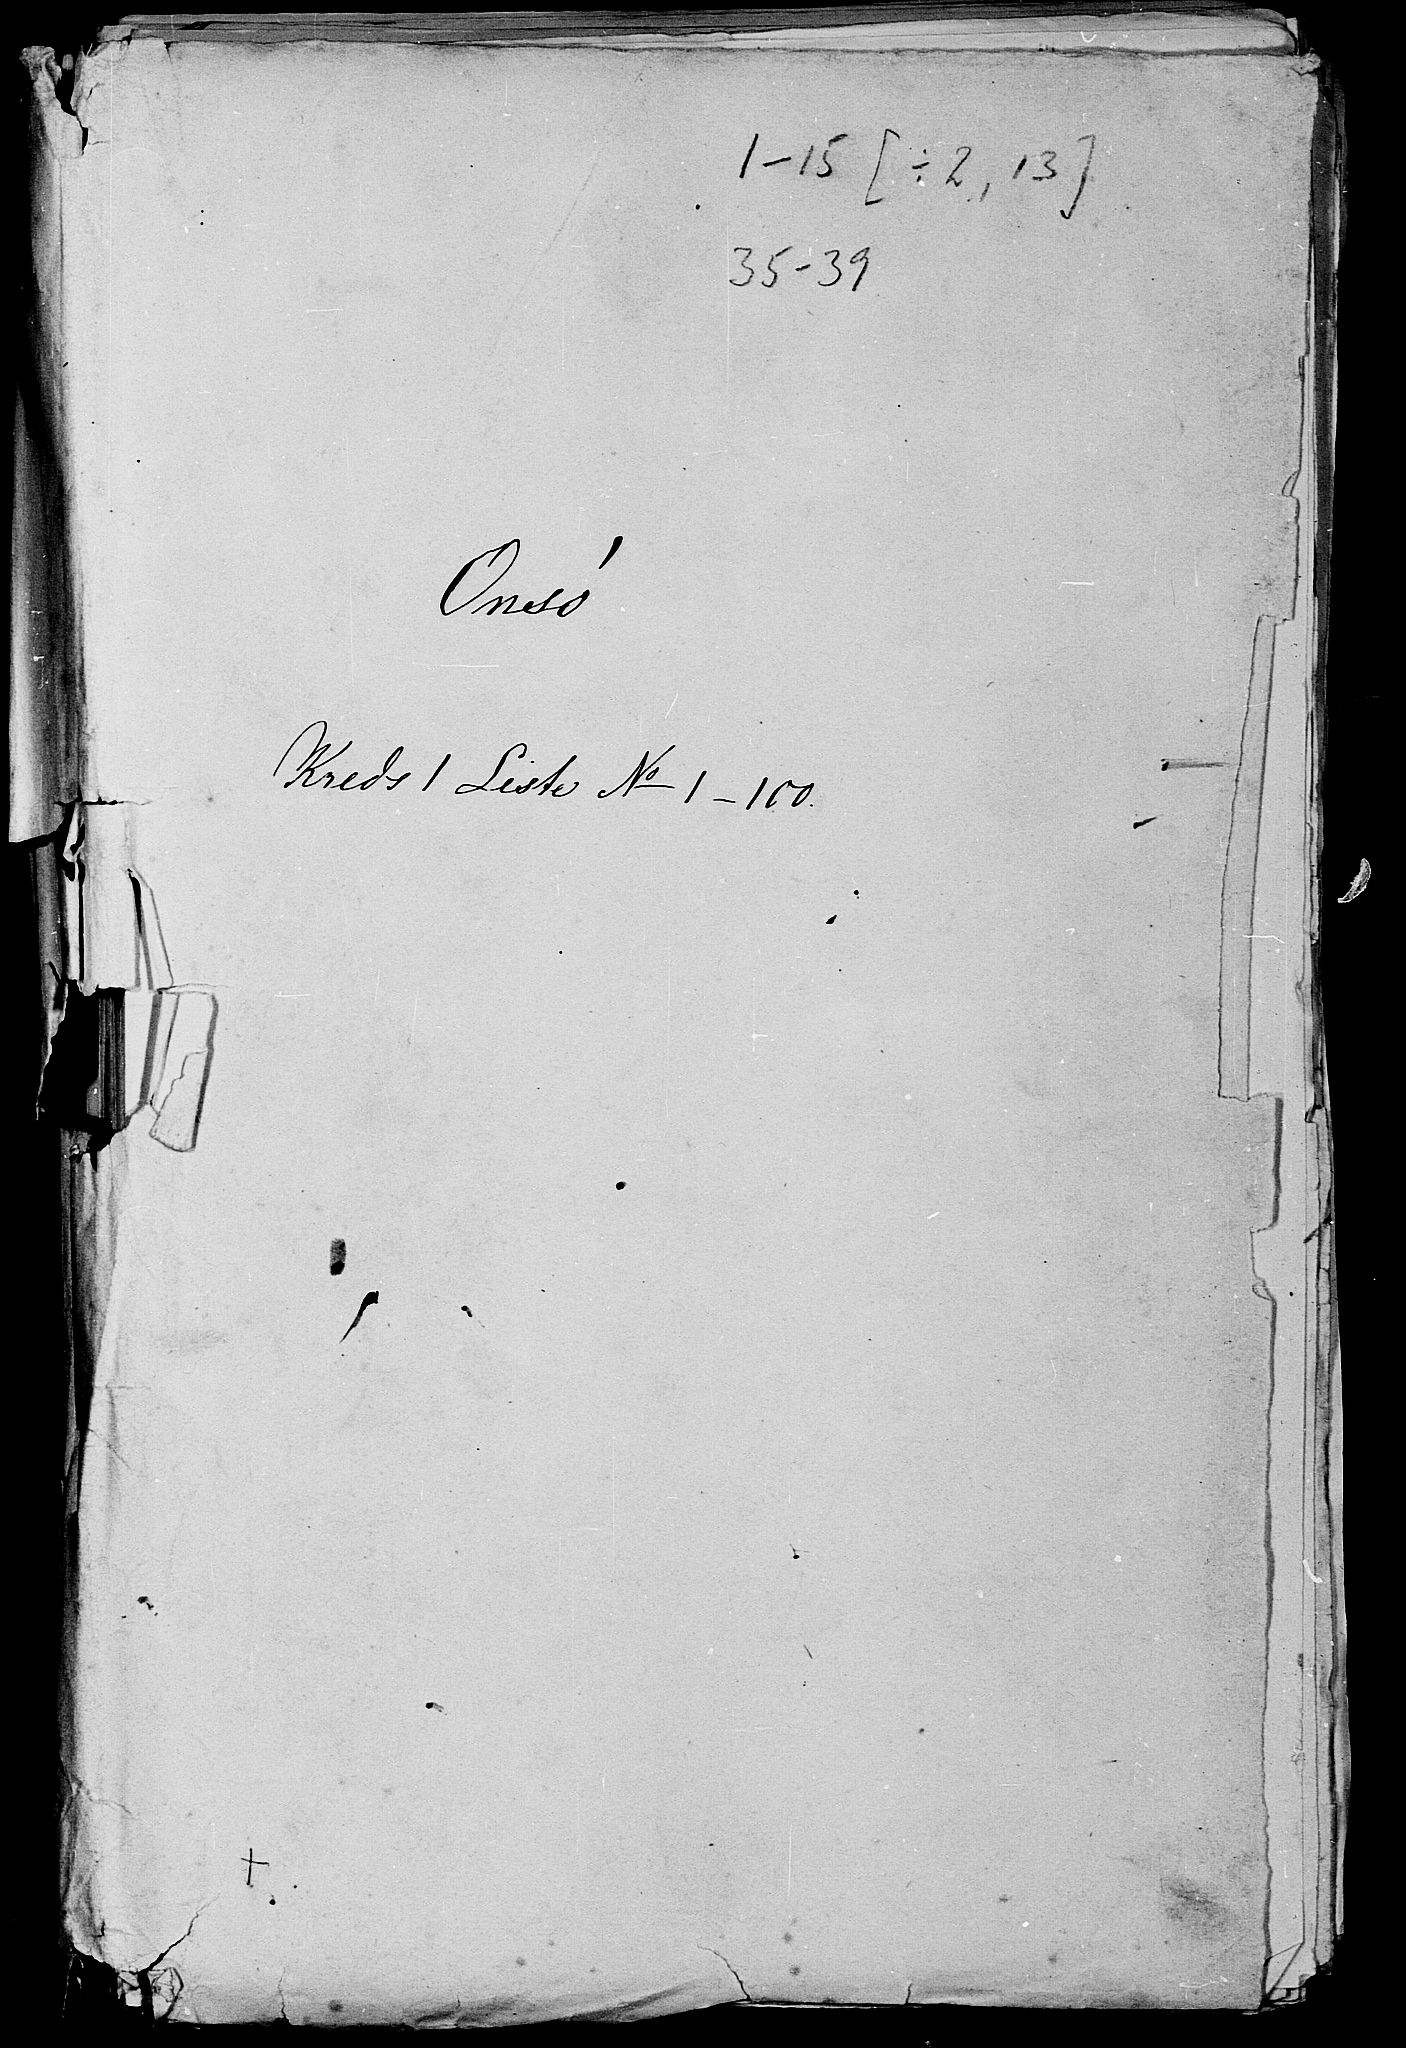 1-15 [÷2, 13]
35-39
Onsó
Kreds 1 Liste No 1-100.
+